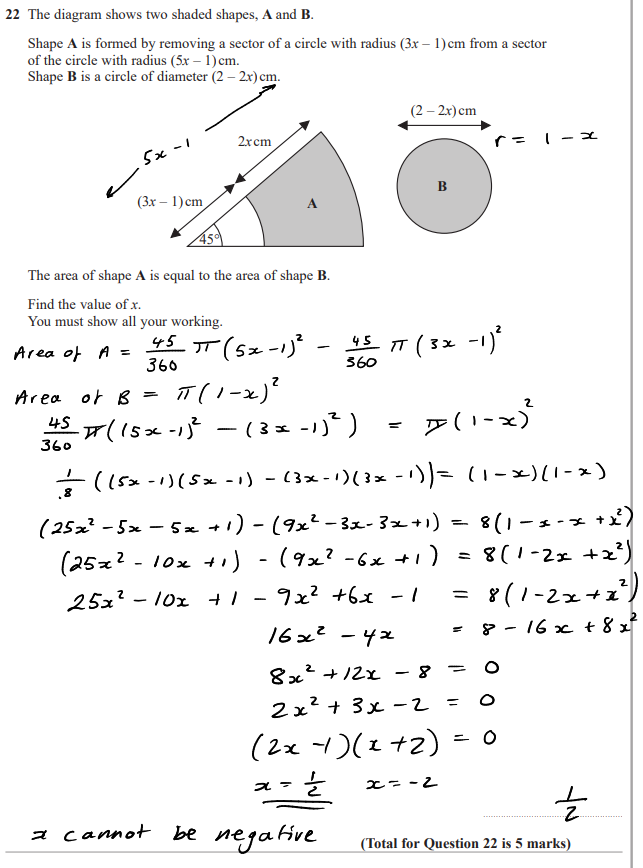 22 The diagram shows two shaded shapes, A and B.
Shape A is formed by removing a sector of a circle with radius (3x – 1) cm from a sector
of the circle with radius (5x – 1) cm.
Shape B is a circle of diameter (2 – 2x) cm.
(2 – 2x) cm
5x - 1
2x cm
r = 1 - x
(3x – 1) cm
A
B
45°
The area of shape A is equal to the area of shape B.
Find the value of x.
You must show all your working.
Area of A = 45/360 π (5x - 1)² - 45/360 π (3x - 1)²
Area of B = π (1 - x)²
45/360 π ((5x - 1)² - (3x - 1)²) = π (1 - x)²
1/8 ((5x - 1)(5x - 1) - (3x - 1)(3x - 1)) = (1 - x)(1 - x)
(25x² - 5x - 5x + 1) - (9x² - 3x - 3x + 1) = 8(1 - x - x + x²)
(25x² - 10x + 1) - (9x² - 6x + 1) = 8(1 - 2x + x²)
25x² - 10x + 1 - 9x² + 6x - 1 = 8(1 - 2x + x²)
16x² - 4x = 8 - 16x + 8x²
8x² + 12x - 8 = 0
2x² + 3x - 2 = 0
(2x - 1)(x + 2) = 0
x = 1/2 x = -2
1/2
x cannot be negative
(Total for Question 22 is 5 marks)